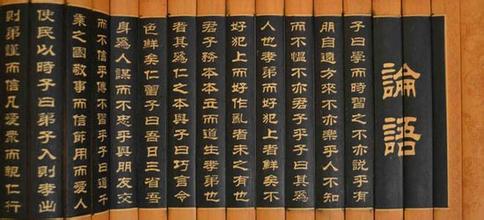 論語
子曰學而時習之不亦說乎有
朋自遠方來不亦樂乎人不知
而不慍不亦君子乎有子曰其為
人也孝弟而好犯上者鮮矣不
好犯上而好作亂者未之有也
君子務本本立而道生孝弟也
者其為仁之本與子曰巧言令
色鮮矣仁曾子曰吾日三省吾
身為人謀而不忠乎與朋友交
而不信乎傳不習乎子曰道千
乘之國敬事而信節用而愛人
使民以時子曰弟子入則孝出
則弟謹而信凡愛衆而親仁行